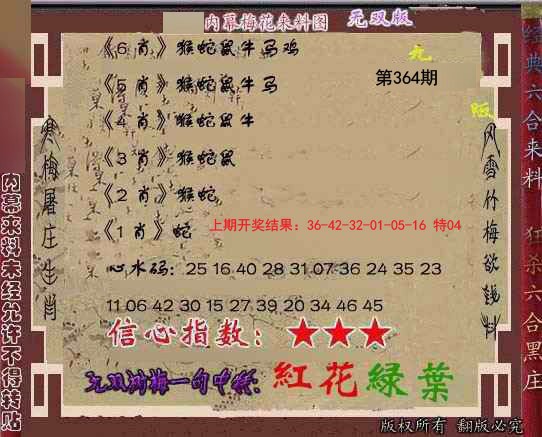 内幕梅花来料图 无双版
《6 肖》猴蛇鼠牛马鸡
《5 肖》猴蛇鼠牛马
第364期
《4 肖》猴蛇鼠牛
《3 肖》猴蛇鼠
《2 肖》猴蛇
《1 肖》蛇
上期开奖结果：36-42-32-01-05-16 特04
心水码：25 16 40 28 31 07 36 24 35 23
11 06 42 30 15 27 39 20 34 46 45
信心指数：★★★
一句中特：紅花緑葉
版权所有 翻版必究
寒梅屠庄生肖
风雪竹梅欲钱料
内幕来料未经允许不得转贴
经典六合来料 狂杀六合黑庄